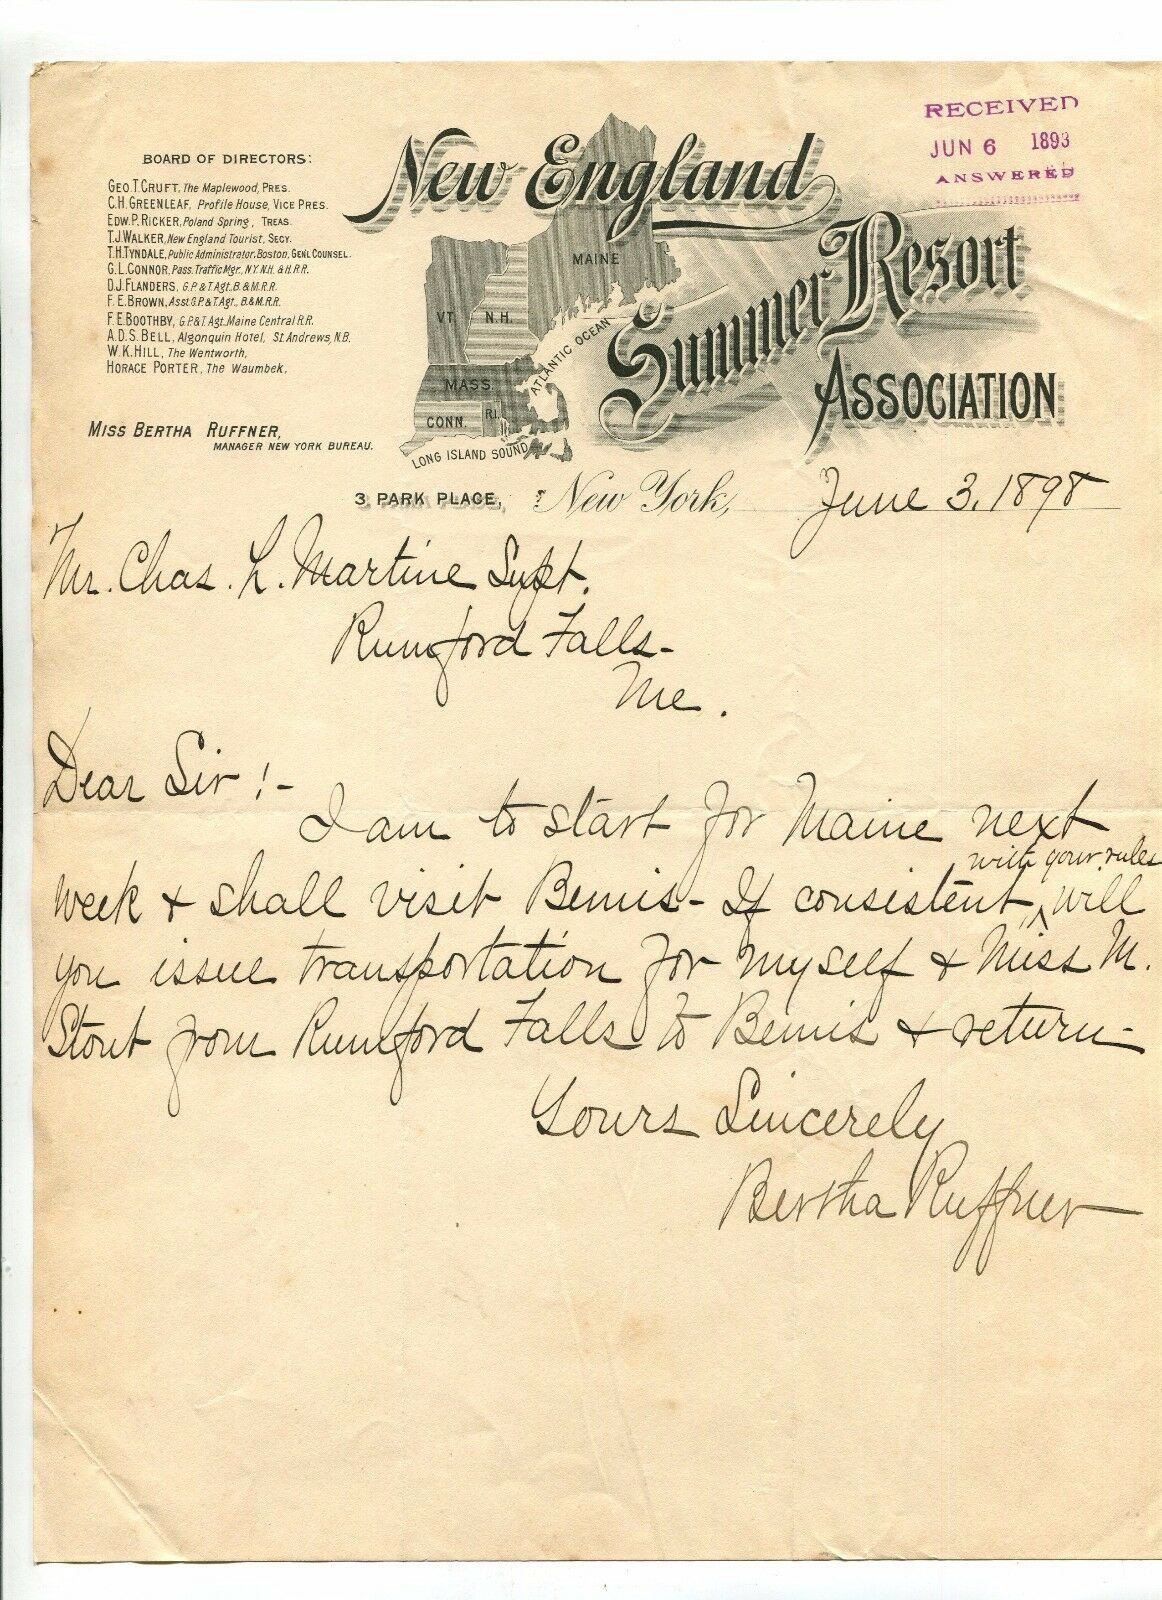 RECEIVED
JUN 6 1898
ANSWERED
New England
Summer Resort
ASSOCIATION
BOARD OF DIRECTORS:
GEO. T. CRUFT, The Maplewood, PRES.
C.H. GREENLEAF, Profile House, VICE PRES.
EDW. P. RICKER, Poland Spring, TREAS.
T.J. WALKER, New England Tourist, SECY.
T.H. TYNDALE, Public Administrator, Boston, GENL COUNSEL.
G.L. CONNOR, Pass. Traffic Mgr., N.Y. N.H. & H.R.R.
D.J. FLANDERS, G.P. & T. Agt. B. & M.R.R.
F.E. BROWN, Asst G.P. & T. Agt., B. & M.R.R.
F.E. BOOTHBY, G.P. & T. Agt. Maine Central R.R.
A.D.S. BELL, Algonquin Hotel, St. Andrews, N.B.
W.K. HILL, The Wentworth,
HORACE PORTER, The Waumbek.
MISS BERTHA RUFFNER,
MANAGER NEW YORK BUREAU.
MAINE
VT.
N.H.
MASS.
CONN.
R.I.
ATLANTIC OCEAN
LONG ISLAND SOUND
3 PARK PLACE, New York, June 3, 1898
Mr. Chas. L. Martine Supt.
Rumford Falls-
Me.
Dear Sir!-
I am to start for Maine next
week & shall visit Bemis- If consistent, with your rules will
you issue transportation for myself & Miss M.
Stout from Rumford Falls to Bemis & return-
Yours Sincerely
Bertha Ruffner